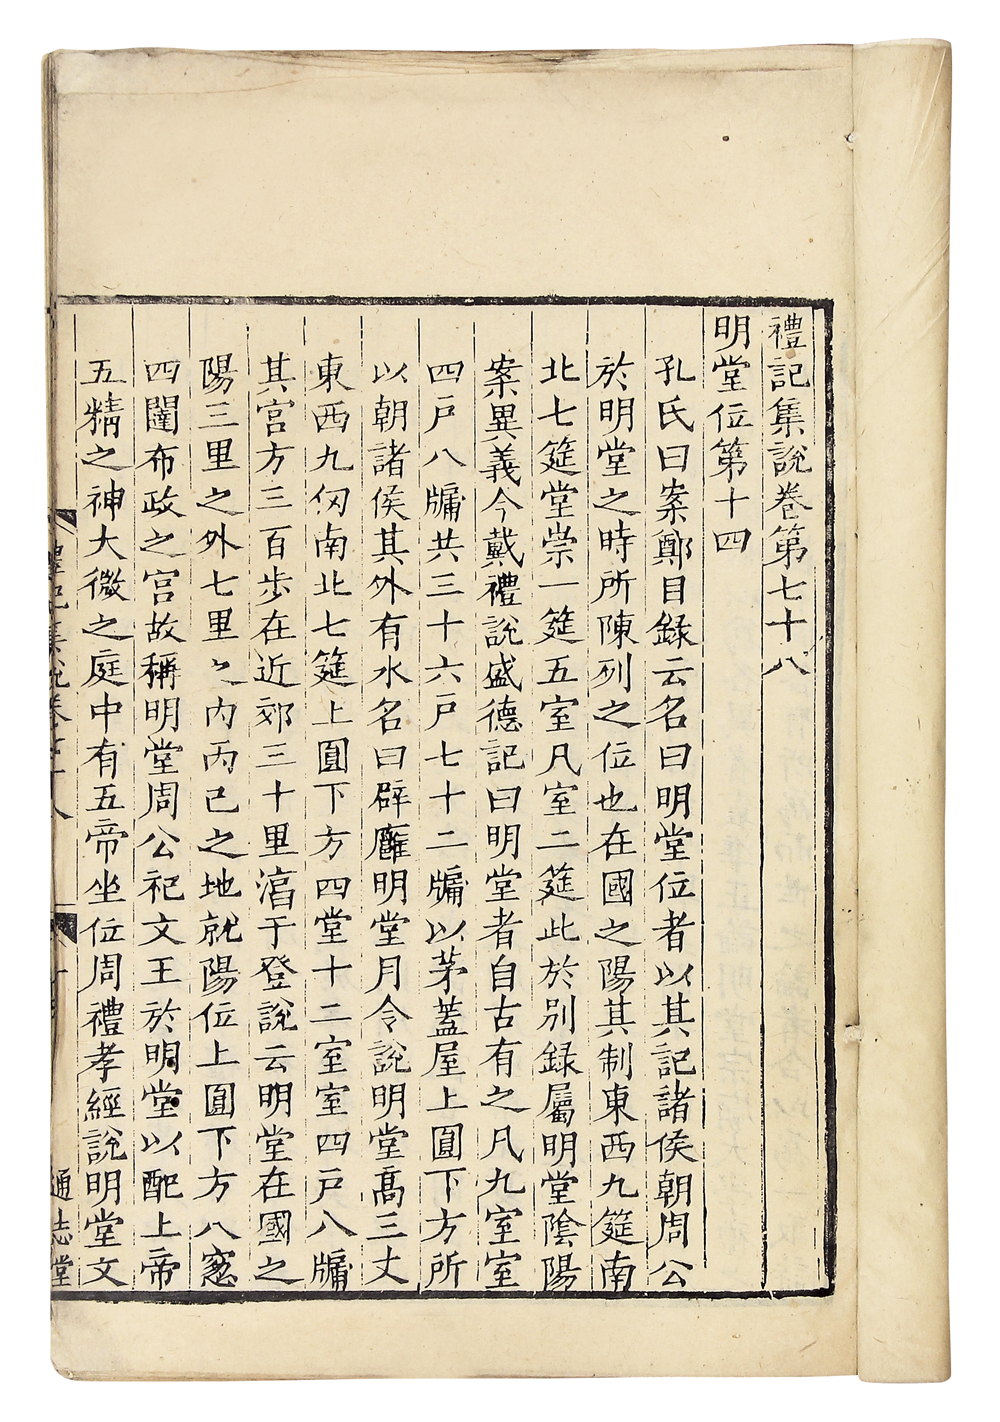 禮記集說卷第七十八
明堂位第十四
孔氏曰案鄭目錄云名曰明堂位者以其記諸侯朝周公
於明堂之時所陳列之位也在國之陽其制東西九筵南
北七筵堂崇一筵五室凡室二筵此於別錄屬明堂陰陽
案異義今戴禮說盛德記曰明堂者自古有之凡九室室
四戸八牖共三十六戸七十二牖以茅蓋屋上圓下方所
以朝諸侯其外有水名曰辟廱明堂月令說明堂髙三丈
東西九仞南北七筵上圓下方四堂十二室室四戸八牖
其宫方三百步在近郊三十里淳于登說云明堂在國之
陽三里之外七里之內丙己之地就陽位上圓下方八窻
四闥布政之宫故稱明堂周公祀文王於明堂以配上帝
五精之神大微之庭中有五帝坐位周禮孝經說明堂文
禮記集說卷七十八
通志堂